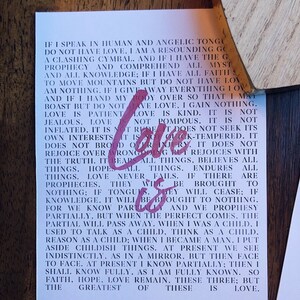 IF I SPEAK IN HUMAN AND ANGELIC TONGUES
DO NOT HAVE LOVE, I AM A RESOUNDING GO
A CLASHING CYMBAL. AND IF I HAVE THE G
PROPHECY AND COMPREHEND ALL MYST
AND ALL KNOWLEDGE; IF I HAVE ALL FAITH
TO MOVE MOUNTAINS BUT DO NOT HAVE LOV
AM NOTHING. IF I GIVE AWAY EVERYTHING I OWN
AND IF I HAND MY OVER SO THAT I MAY
BOAST BUT DO NOT HAVE LOVE, I GAIN NOTHING.
LOVE IS PATIENT, LOVE IS KIND. IT IS NOT
JEALOUS, LOVE IS NOT POMPOUS, IT IS NOT
INFLATED, IT IS NOT DOES NOT SEEK ITS
OWN INTERESTS, IT IS NOT TEMPERED, IT
DOES NOT BROOD IT DOES NOT
REJOICE OVER REJOICES WITH
THE TRUTH. IT THINGS, BELIEVES ALL
THINGS, HOPES ALL THINGS, ENDURES ALL
THINGS. LOVE FAILS. IF THERE ARE
PROPHECIES, BROUGHT TO
NOTHING; IF TONGUES, WILL CEASE; IF
KNOWLEDGE, IT WILL BROUGHT TO NOTHING.
FOR WE KNOW PARTIALLY AND WE PROPHESY
PARTIALLY, BUT WHEN THE PERFECT COMES, THE
PARTIAL WILL PASS AWAY. WHEN I WAS A CHILD, I
USED TO TALK AS A CHILD, THINK AS A CHILD,
REASON AS A CHILD; WHEN I BECAME A MAN, I PUT
ASIDE CHILDISH THINGS. AT PRESENT WE SEE
INDISTINCTLY, AS IN A MIRROR, BUT THEN FACE
TO FACE. AT PRESENT I KNOW PARTIALLY; THEN I
SHALL KNOW FULLY, AS I AM FULLY KNOWN. SO
FAITH, HOPE, LOVE REMAIN, THESE THREE; BUT
THE GREATEST OF THESE IS LOVE.
Love
is